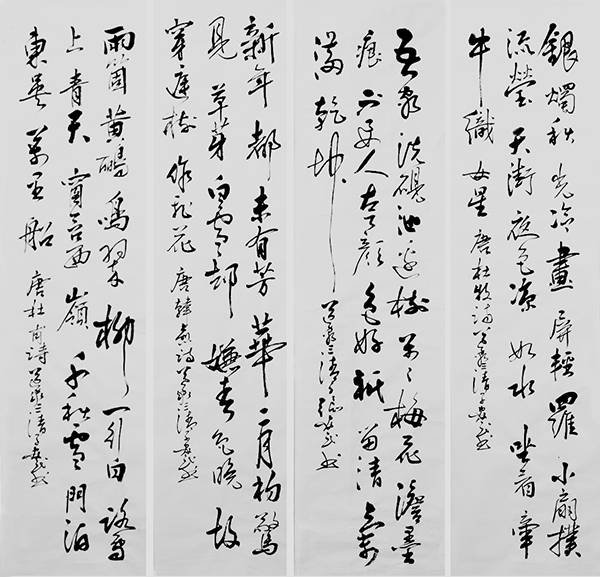 銀燭秋光冷畫屏輕羅小扇撲
流螢天街夜色涼如水坐看牽
牛織女星 唐杜牧詩
吾家洗硯池邊樹個々梅花澹墨
痕不要人夸顏色好祇留清氣
滿乾坤
新年都未有芳華二月初驚
見草芽白雪却嫌春色晚故
穿庭樹作飛花 唐韓愈詩
兩箇黃鸝鳴翠柳一行白鷺
上青天窗含西嶺千秋雪門泊
東吳萬里船 唐杜甫詩